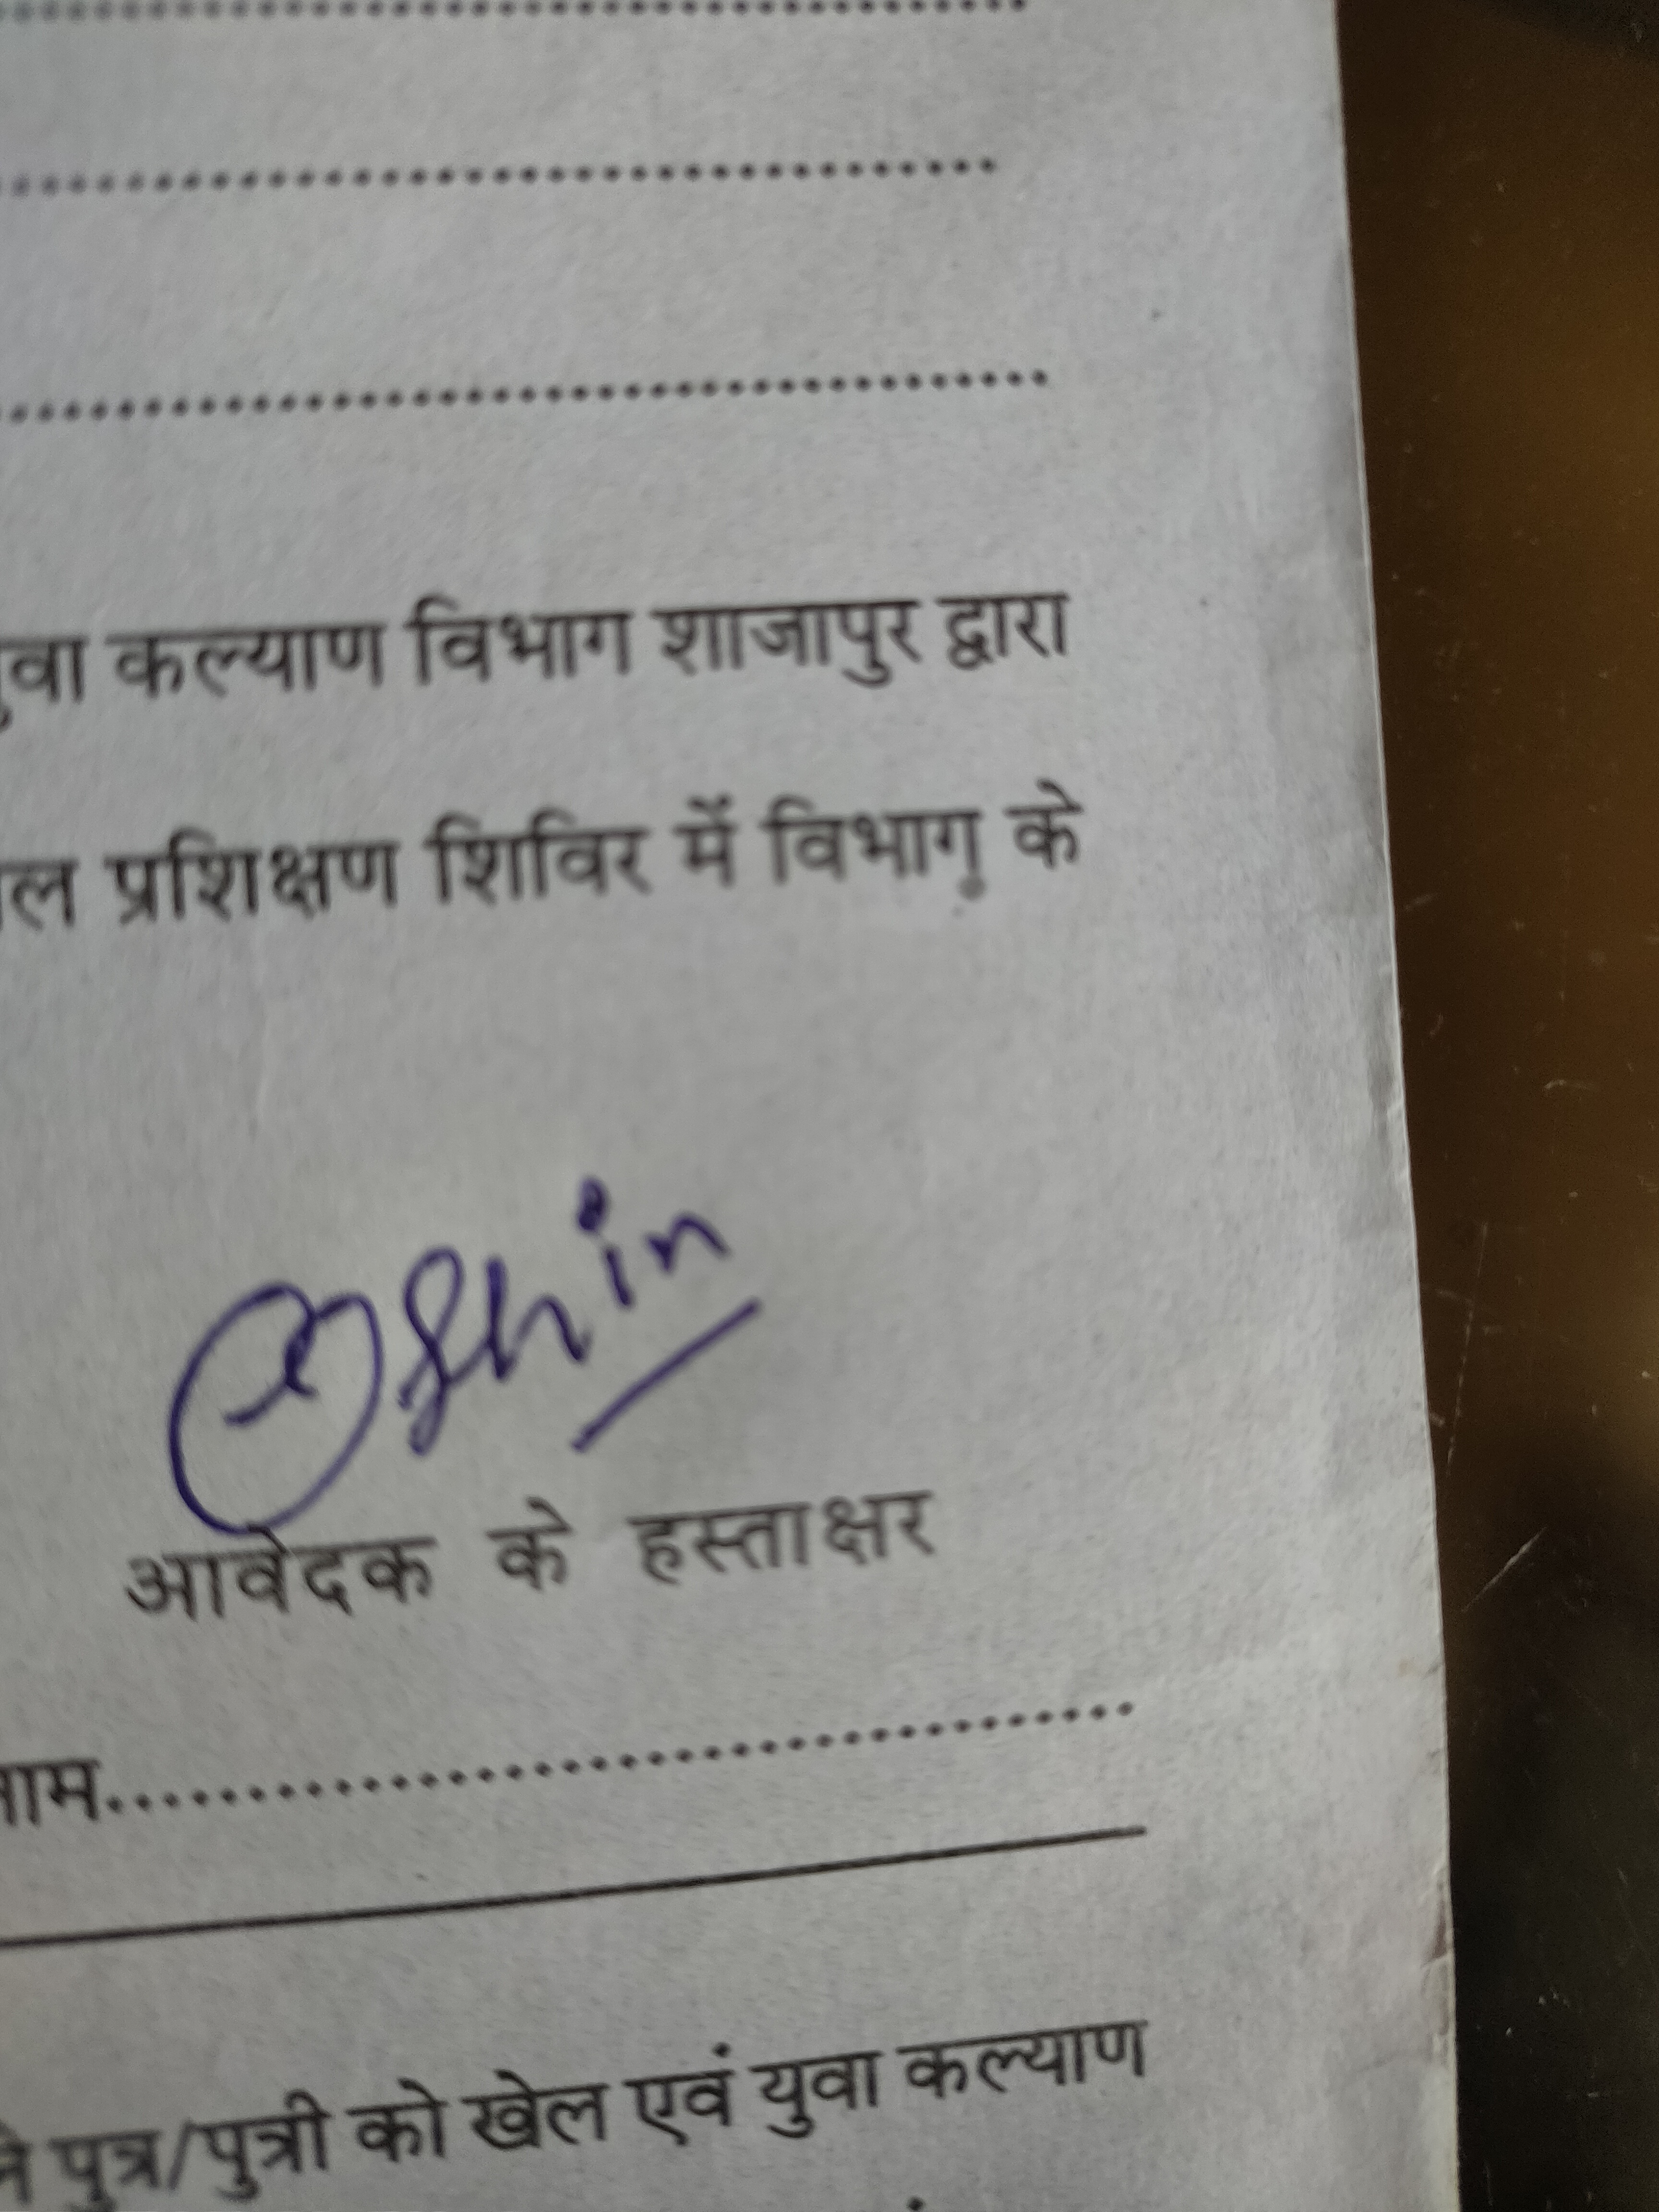 युवा कल्याण विभाग शाजापुर द्वारा
प्रशिक्षण शिविर में विभाग के
आवेदक के हस्ताक्षर
नाम........................................
पुत्र/पुत्री को खेल एवं युवा कल्याण